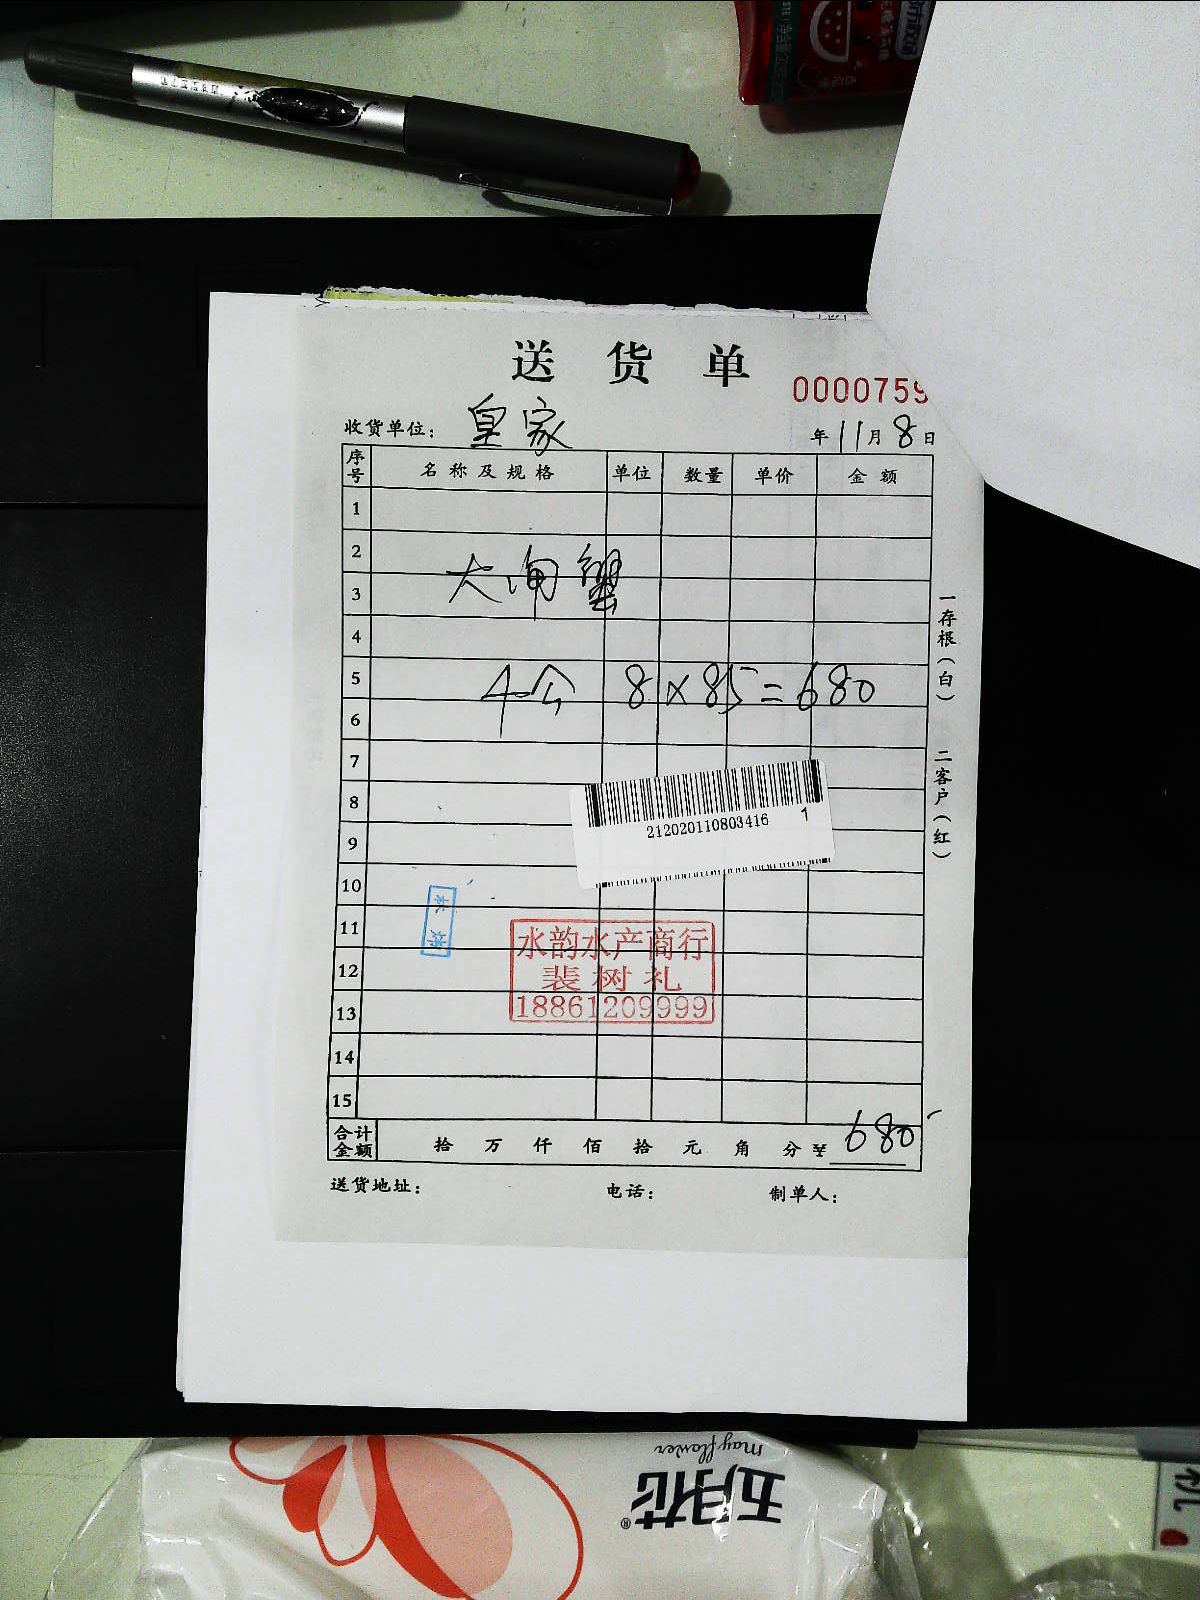 送货单
0000759
收货单位：皇家
年11月8日
序号 名称及规格 单位 数量 单价 金额
1
2
大闸蟹
3
4
5 4公 8×85=680
6
7
8
212020110803416 1
9
10
11
水韵水产商行
12 裴树礼
13 18861209999
14
15
合计金额 拾 万 仟 佰 拾 元 角 分 ¥ 680
送货地址： 电话： 制单人：
一存根（白）
二客户（红）
五月花®
mayflower